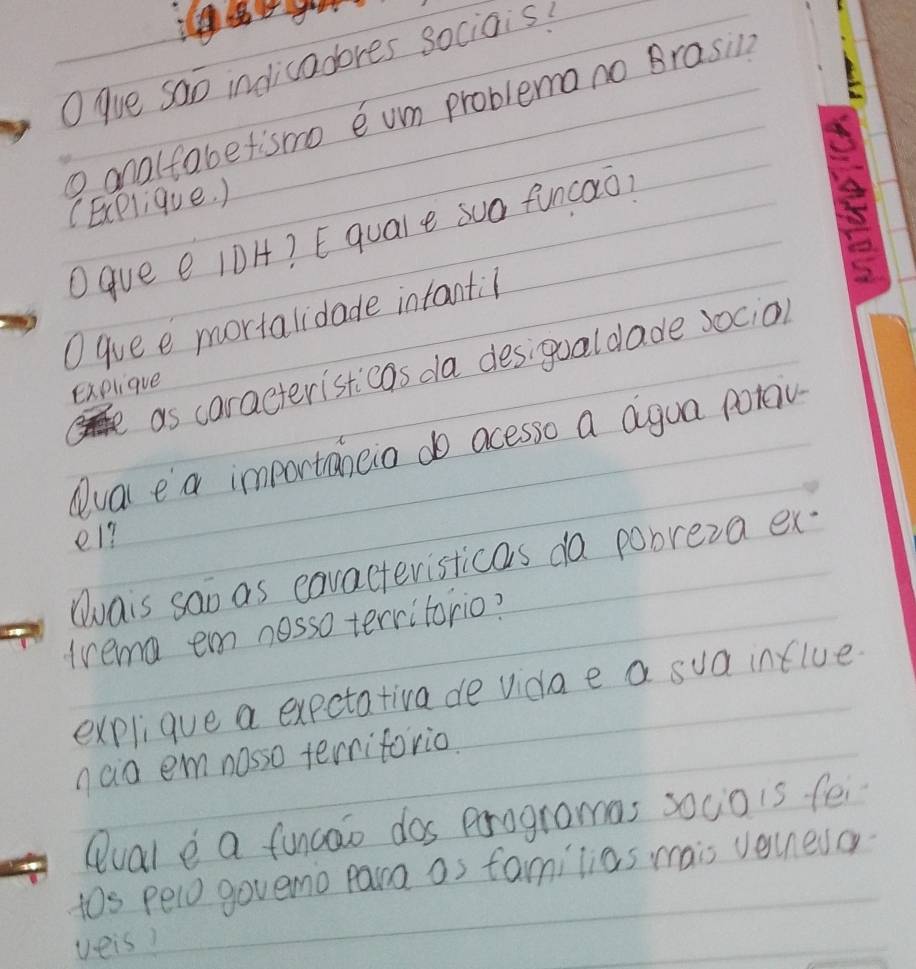 O que são indicadores sociais?
O analfabetismo é um problema no Brasil?
(Explique.)
O que e IDH? E qual e sua funcão?
O que é mortalidade infantil
explique
as caracteristicas da desigualdade social
Qual é a importância do acesso a água potáv-
el?
Quais são as caracteristicas da pobreza ex-
trema em nosso território?
explique a expctativa de vida e a sua influe-
ncia em nosso território.
Qual é a funcão dos programas sociais fei-
tos pelo governo para as familias mais vulnerá-
veis?